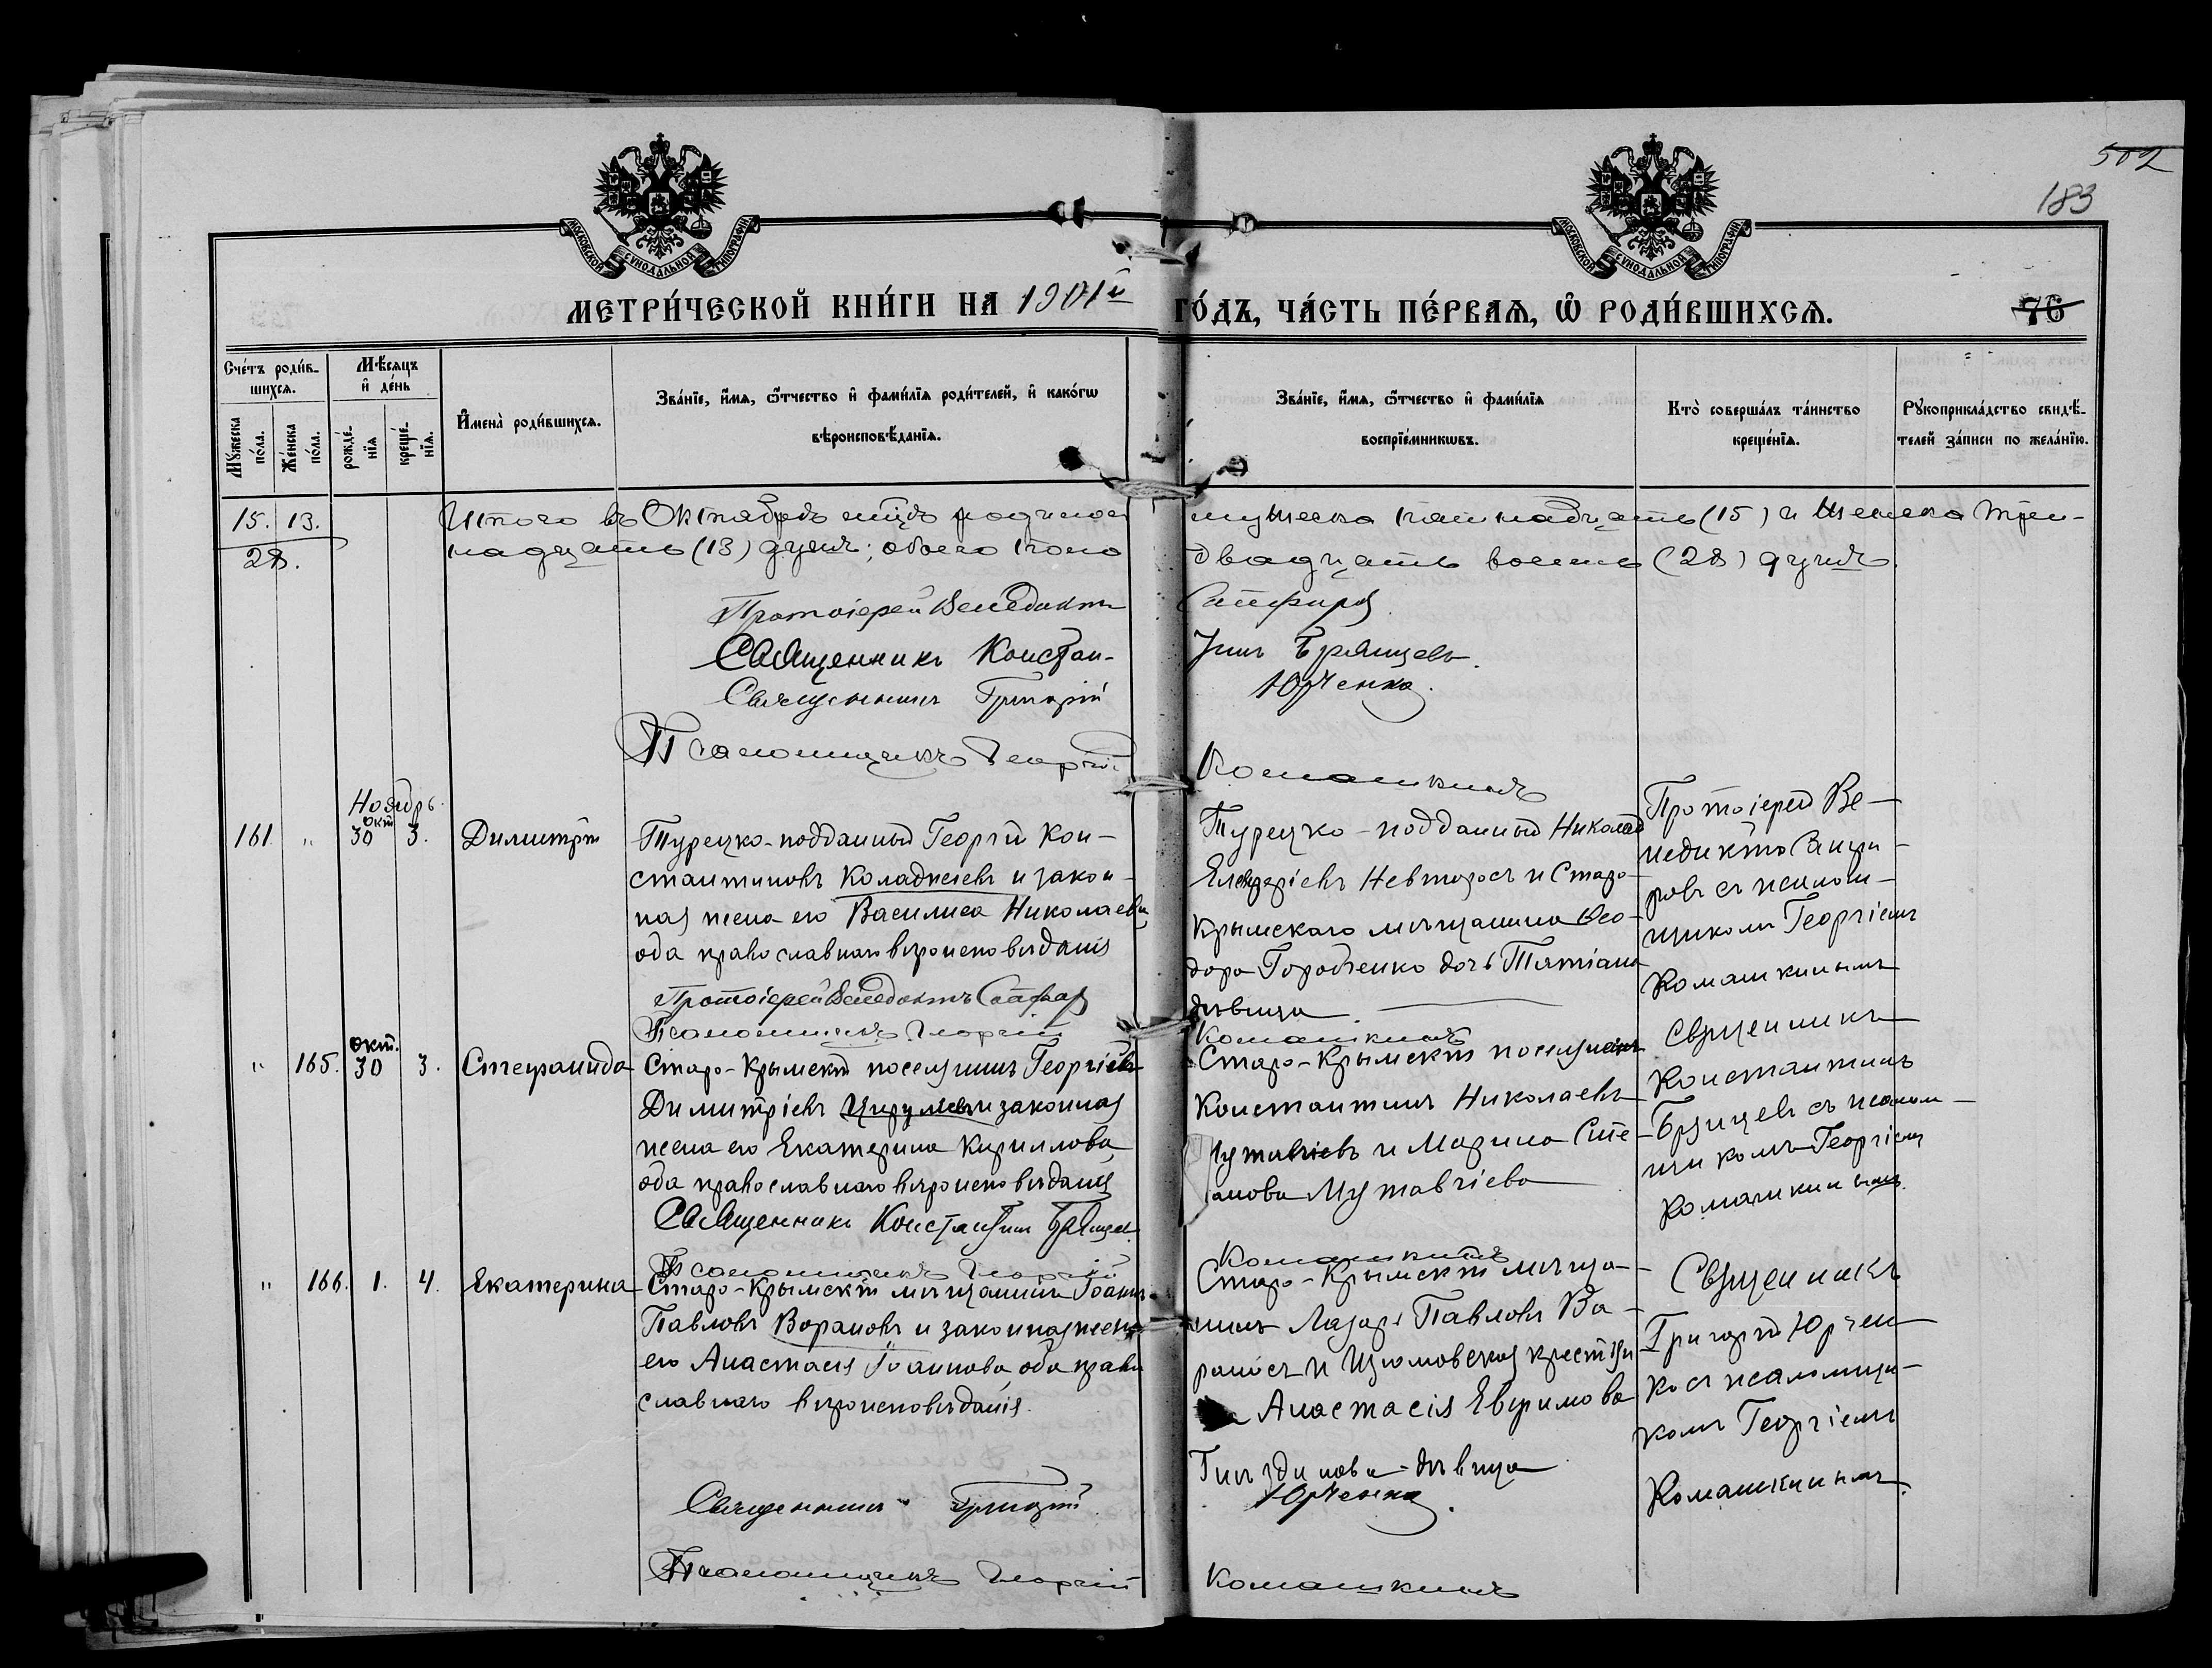 502
183
МОСКОВСКОЙ СѴНОДАЛЬНОЙ ТИПОГРАФІИ
МОСКОВСКОЙ СѴНОДАЛЬНОЙ ТИПОГРАФІИ
МЕТРИ́ЧЕСКОЙ КНИ́ГИ НА 1901й ГО́ДЪ, ЧА́СТЬ ПЕ́РВАЯ, Ѽ РОДИ́ВШИХСЯ.
76
Счетъ роди́в-
шихся.
Мꙋжеска по́ла.
Же́нска по́ла.
Мѣсяцъ и҆ де́нь
рожде́-
нїя
креще́-
нїя.
И҆мена̀ роди́вшихся.
Зва́нїе, и҆́мя, ѻ҆́тчество и҆ фами́лїя роди́телей, и҆ како́гѡ
вѣроисповѣ́данїя.
Зва́нїе, и҆́мя, ѻ҆́тчество и҆ фами́лїя
воспрїе́мникѡвъ.
Кто̀ соверша́лъ та́инство
креще́нїя.
Рꙋкоприкла́дство свидѣ́-
телей за́писи по жела́нїю.
15. 13.
28.
Итого въ Октябрѣ мцѣ родилось мужеска пятнадцать (15) и женска три-
надцать (13) душъ; обоего пола двадцать восемь (28) душъ.
Протоіерей Венедиктъ Сапфировъ
Священникъ Константинъ Брянцевъ.
Священникъ Григорій Юрченко.
Псаломщикъ Георгій Комашкинъ
Ноябрь.
161 " окт 30 3. Димитрій
Турецко-подданный Георгій Кон-
стантиновъ Коладжіевъ и закон-
ная жена его Василиса Николаева
оба православнаго вѣроисповѣданія
Протоіерей Венедиктъ Сапфировъ
Псаломщикъ Георгій Комашкинъ
Турецко-подданный Николай
Елевферіевъ Невторосъ и Старо-
Крымскаго мѣщанина Ѳео-
дора Городченко дочь Татіана
дѣвица.
Протоіерей Ве-
недиктъ Сапфи-
ровъ съ псалом-
щикомъ Георгіемъ
Комашкинымъ
" 165. окт. 30 3. Стефанида
Старо-Крымскій поселянинъ Георгій
Димитріевъ Цирулевъ и законная
жена его Екатерина Кириллова
оба православнаго вѣроисповѣданія
Священникъ Константинъ Брянцевъ
Псаломщикъ Георгій Комашкинъ
Старо-Крымскій поселянинъ
Константинъ Николаевъ
Мутавчіевъ и Марина Сте-
анова Мутавчіева
Священникъ
Константинъ
Брянцевъ съ псалом-
щикомъ Георгіемъ
Комашкинымъ.
" 166. 1. 4. Екатерина
Старо-Крымскій мѣщанинъ Іоаннъ
Павловъ Ворановъ и законная жена
его Анастасія Іоаннова, оба право
славнаго вѣроисповѣданія.
Священникъ Григорій Юрченко.
Псаломщикъ Георгій Комашкинъ
Старо-Крымскій мѣща-
нинъ Лазарь Павловъ Ва-
рановъ и Изюмовская крестьян
ка Анастасія Евфимова
Гнѣздилова дѣвица
Священникъ
Григорій Юрчен
ко съ псаломщи-
комъ Георгіемъ
Комашкинымъ.